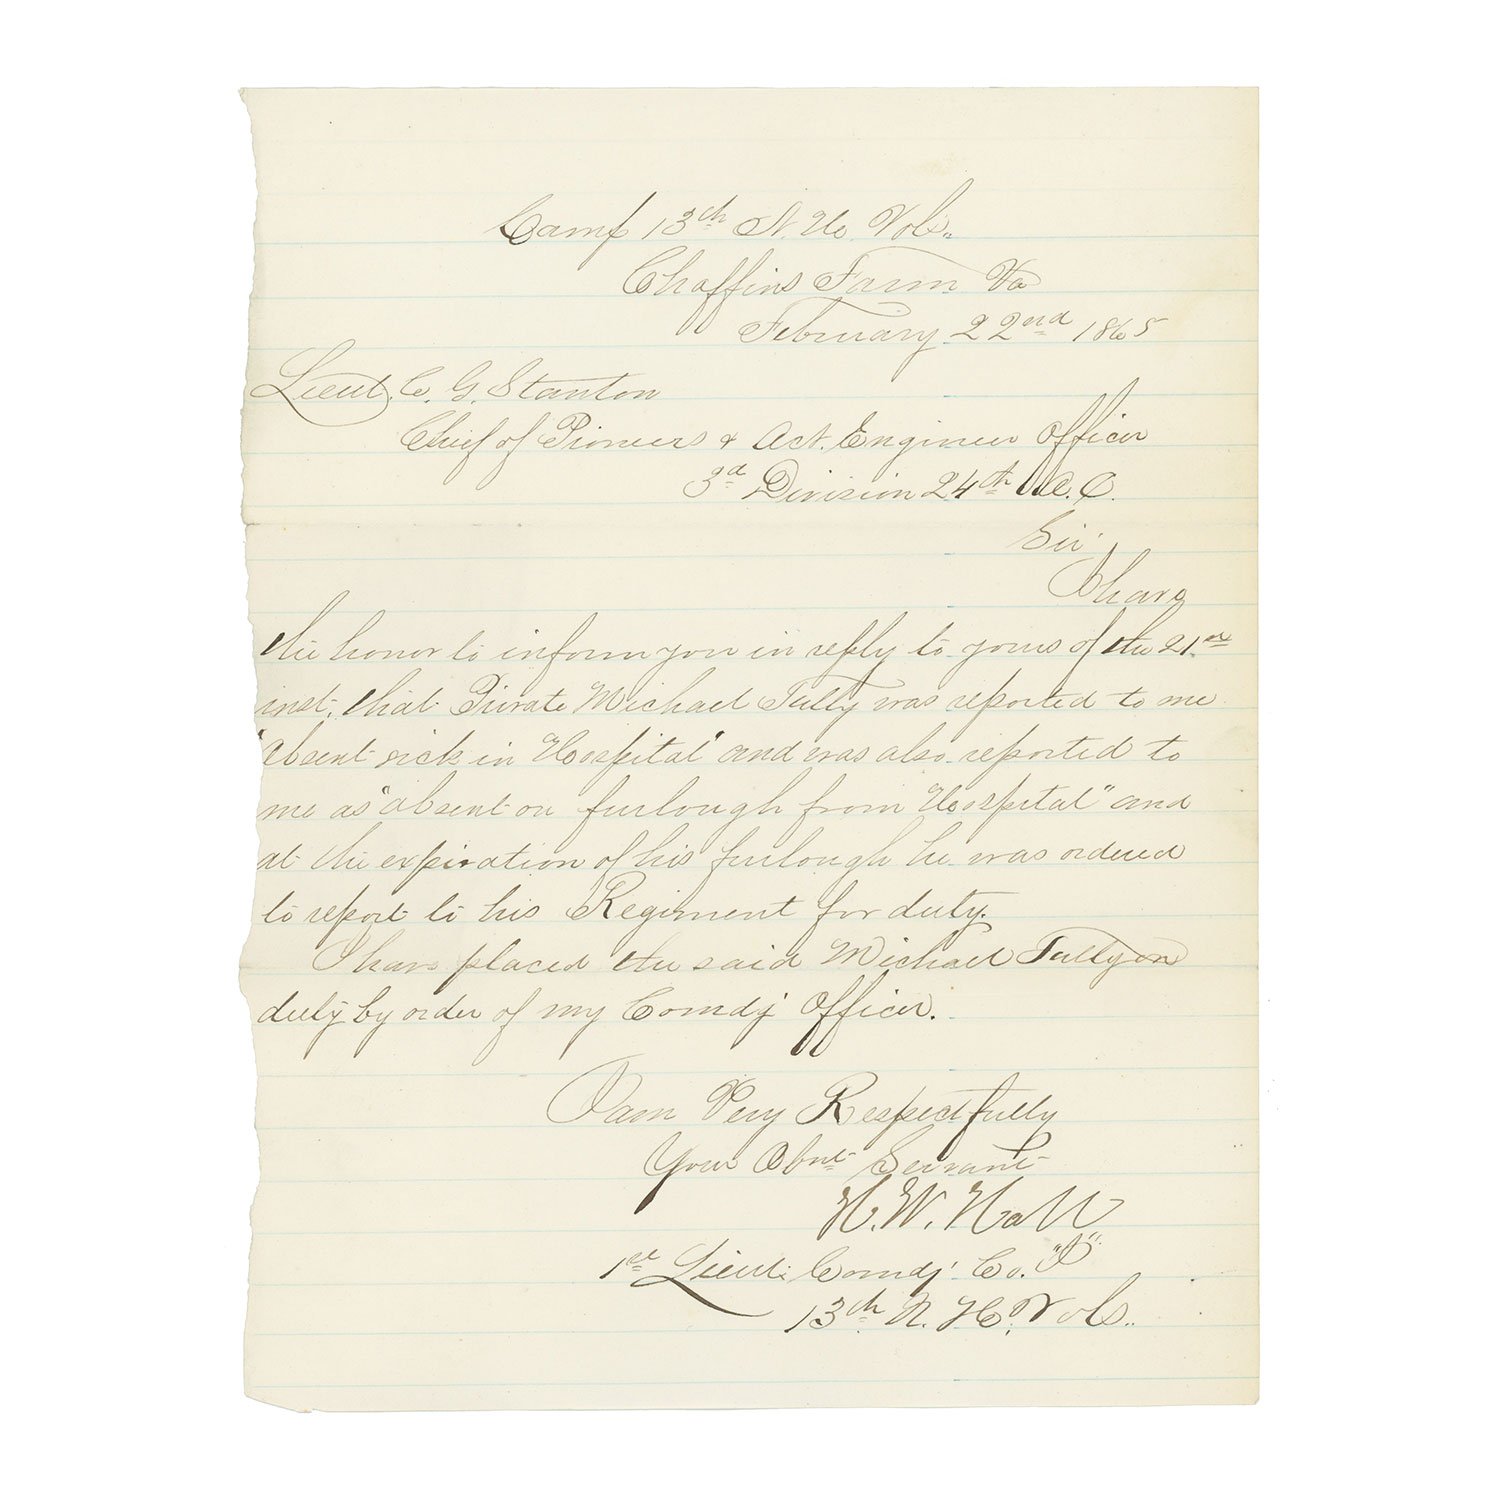 Camp 13th N. H. Vols.
Chaffins Farm Va
February 22nd 1865
Lieut. C. G. Stanton
Chief of Pioneers & Act. Engineer Officer
3d Division 24th A. C.
Sir
I have
the honor to inform you in reply to yours of the 21st
inst. that Private Michael Tully was reported to me
"absent sick in Hospital" and was also reported to
me as "absent on furlough from Hospital" and
at the expiration of his furlough he was ordered
to report to his Regiment for duty.
I have placed the said Michael Tully on
duty by order of my Comdg Officer.
I am Very Respectfully
Your Obnt Servant
H. W. Hall
1st Lieut. Comdg Co.
13th N. H. Vols.